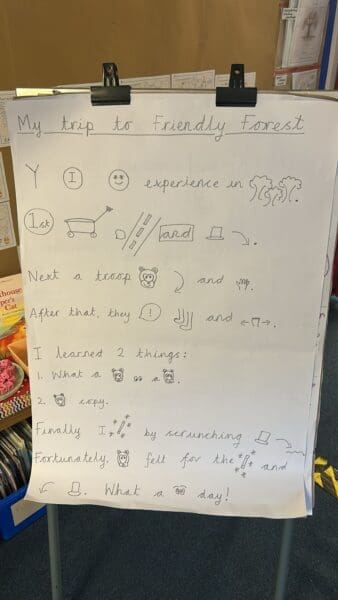 My trip to Friendly Forest
Y I experience in .
1st and .
Next a troop and .
After that, they ! and .
I learned 2 things:
1. What a " a .
2. copy.
Finally I by scrunching
Fortunately, felt for the and
. What a day!